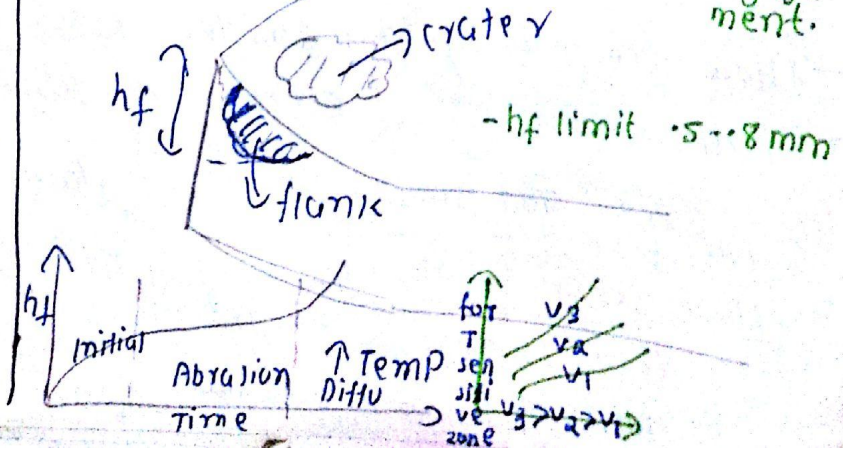 ment.
crater
hf
-hf limit .5-.8 mm
flank
hf
initial
Abrasion
↑ Temp
Diffu
Time
for
T
sen
siti
ve
zone
V3
V2
V1
V3>V2>V1